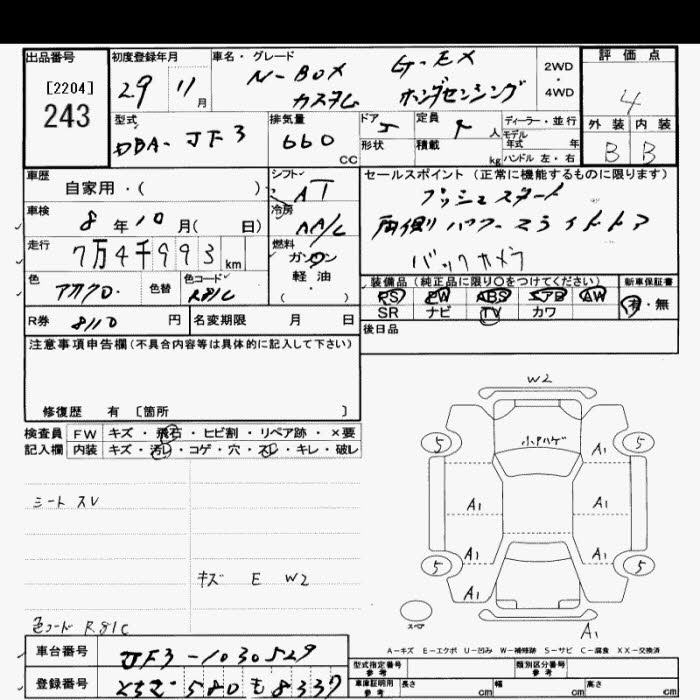 出品番号
[2204]
243
初度登録年月
29 11月
車名・グレード
N-BOX G・EX
カスタム ホンダセンシング
2WD
・
4WD
評価点
4
外装 内装
B B
型式
DBA- JF3
排気量
660 CC
ドア 5
形状
定員 4 人
積載 kg
ディーラー・並行
モデル年式 年
ハンドル 左・右
車歴
自家用・( )
シフト
AT
車検
8年10月( 日)
冷房
AA/C
走行
7万4千993 km
燃料
ガソリン
軽・油
( )
色
アカクロ・
色替
色コード
R81C
R券 8110 円
名変期限 月 日
セールスポイント (正常に機能するものに限ります)
プッシュスタート
両側パワースライドドア
バックカメラ
装備品 (純正品に限り〇をつけてください)
PS PW ABS エアB AW
SR ナビ TV カワ
新車保証書
有・無
後日品
注意事項申告欄(不具合内容等は具体的に記入して下さい)
修復歴 有 〔箇所 〕
検査員記入欄
FW キズ・飛石・ヒビ割・リペア跡・×要
内装 キズ・汚レ・コゲ・穴・スレ・キレ・破レ
シート スレ
キズ E W2
色コード R81C
W2
小キズハゲ
5 A1 5
A1 A1
A1 A1
5 A1 5
スペア
A1
A-キズ E-エクボ U-凹み W-補修跡 S-サビ C-腐食 XX-交換済
車台番号 JF3-1030529
登録番号 580 も 8337
型式指定番号 参考
類別区分番号 参考
車庫証明用 参考
長さ cm 幅 cm 高さ cm